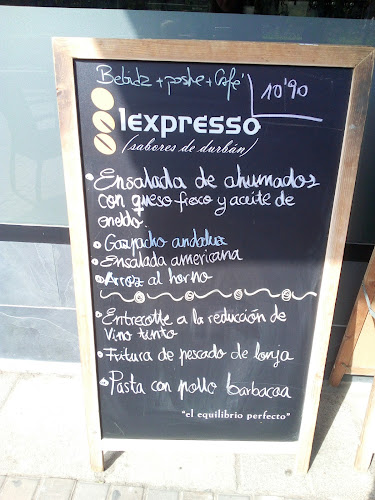 Bebida + postre + Café 10'90
lexpresso
(sabores de durbán)
Ensalada de ahumados
con queso fresco y aceite de
eneldo.
Gazpacho andaluz
Ensalada americana
Arroz al horno
Entrecotte a la reducción de
Vino tinto
Fritura de pescado de lonja
Pasta con pollo barbacoa
"el equilibrio perfecto"